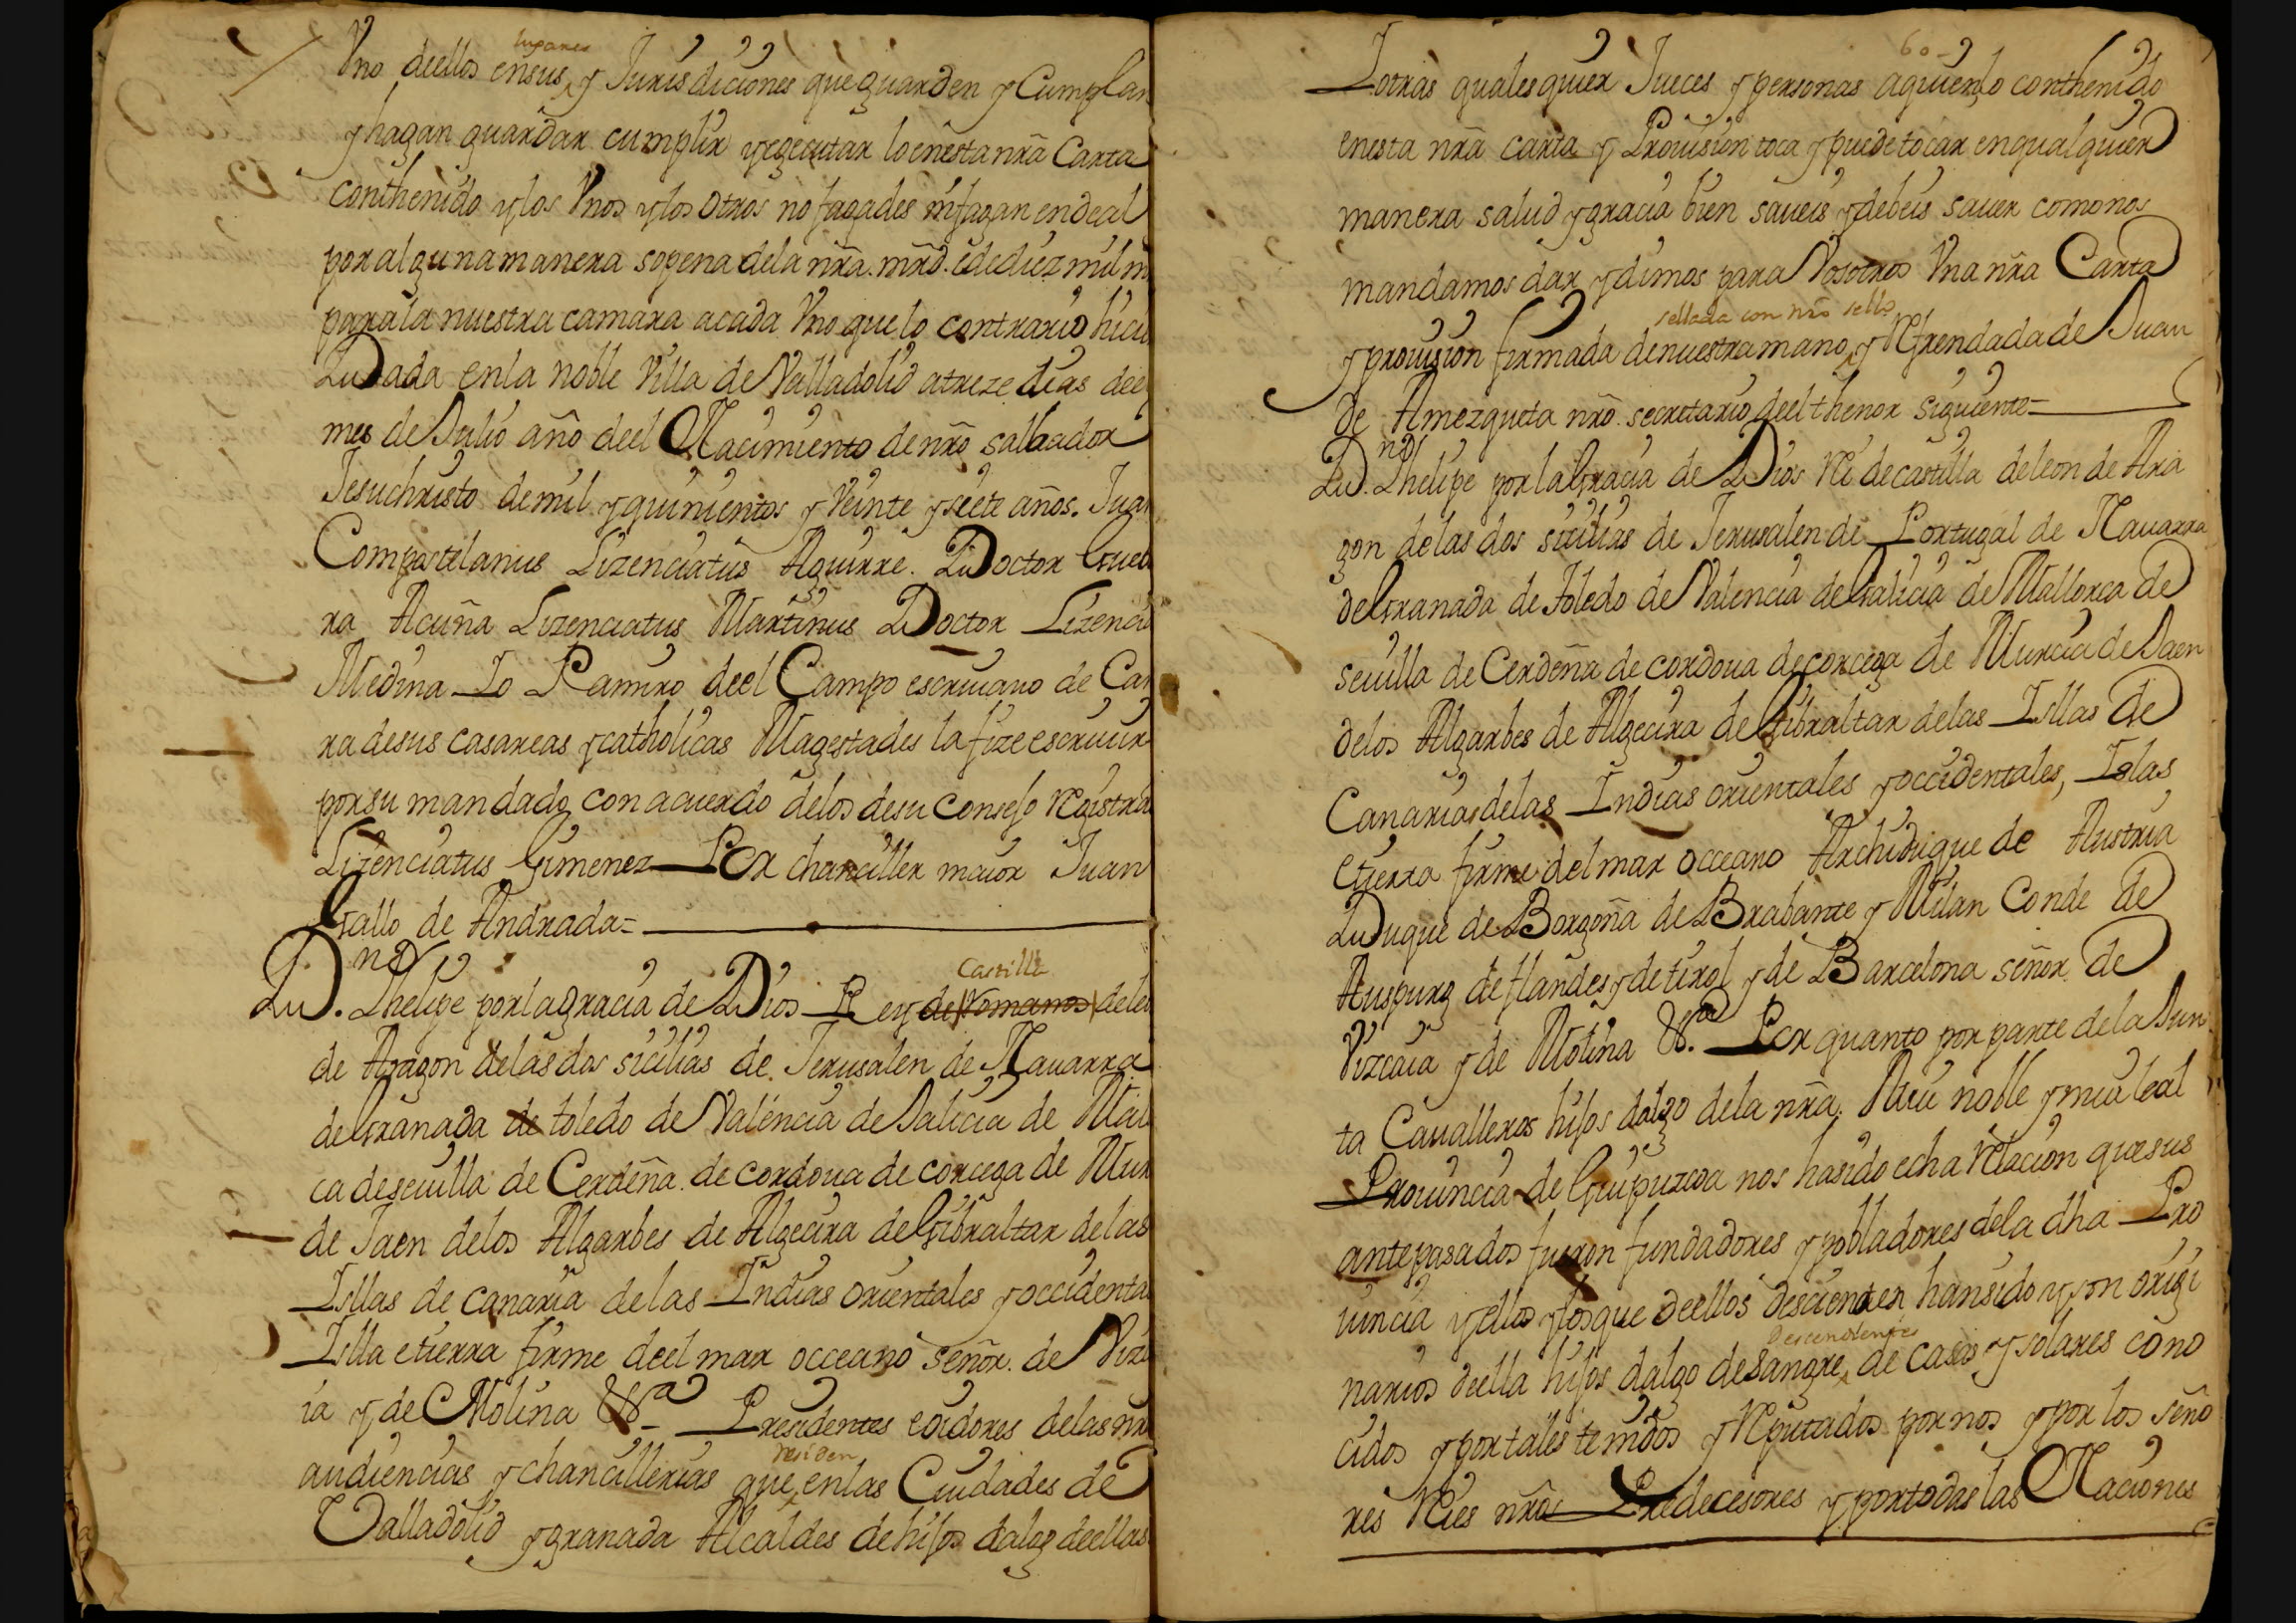 Vno deellos ensus lugares y Jurisdiciones que guarden y Cumplan
y hagan guardar cumplir y egecutar lo enesta nrã Carta
conthenido y los Vnos y los otros no fagades ni fagan endeal
por alguna manera sopena dela nrã. mrd. e de diez mil m
para la nuestra camara acada Vno que lo contrario hici
Dada enla noble Villa de Valladolid atreze dias dee
mes de Julio año deel Nacimiento de nrõ salbador
Jesuchristo de mil y quinientos y Veinte y siete años. Juan
Compostelanus Lizenciatus Aguirre. Doctor Gueba
ra Acuña Lizenciatus Martinus Doctor Lizencia
Medina Io Ramiro deel Campo escriuano de Cam
ra desus casareas y catholicas Magestades la fize escriuir
por su mandado con acuerdo delos desu Consejo Registra
Lizenciatus Gimenez Por chanciller maior Juan
Gallo de Andrada=
Dn. Phelipe por la gracia de Dios Rey de romanos Castilla de leo
de Aragon delas dos sicilias de Jerusalen de Nauarra
de Granada de toledo de Valencia de Galicia de Mall
ca de seuilla de Cerdeña de cordoua de corcega de Mur
de Jaen delos Algarbes de Algecira de Gibraltar delas
Isllas de canaria delas Indias orientales y occidenta
Islla e tierra firme deel mar occeano señor de Vizca
ia y de Molina &a Presidentes e oidores delas nrã
audiencias y chancillerias que residen enlas Ciudades de
Valladolid y granada Alcaldes de hijos dalgo deellas
60
I otras qualesquier Jueces y personas aquien lo conthenido
enesta nrã carta y Prouision toca y puede tocar en qualquier
manera salud y gracia bien saueis y debeis sauer como nos
mandamos dar y dimos para Vosotros Vna nrã Carta
y prouision firmada de nuestra mano sellada con nrõ sello y Refrendada de Juan
de Amezqueta nrõ. secretario deel thenor siguiente=
Dn. Phelipe por la Gracia de Dios Rei de castilla de leon de Ara
gon de las dos sicilias de Jerusalen de Portugal de Nauarra
de Granada de Toledo de Valencia de Galicia de Mallorca de
seuilla de Cerdeña de cordoua de corcega de Murcia de Jaen
delos Algarbes de Algecira de Gibraltar delas Isllas de
Canarias delas Indias orientales y occidentales, Islas
e tierra firme del mar occeano Archiduque de Austria
Duque de Borgoña de Brabante y Milan Conde de
Auspurg de flandes y de tirol y de Barcelona señor de
Vizcaia y de Molina &a. Por quanto por parte de la Jun
ta Caualleros hijos dalgo dela nrã. Mui noble y mui leal
Prouincia de Guipuzcoa nos ha sido echa Relacion que sus
antepasados fueron fundadores y pobladores dela dha Pro
uincia y ellos y los que deellos descienden han sido y son origi
narios deella hijos dalgo de sangre descendentes de casas y solares cono
cidos y por tales tenidos y Reputados por nos y por los seño
res Reies nrõs Predecesores y por todas las Naciones